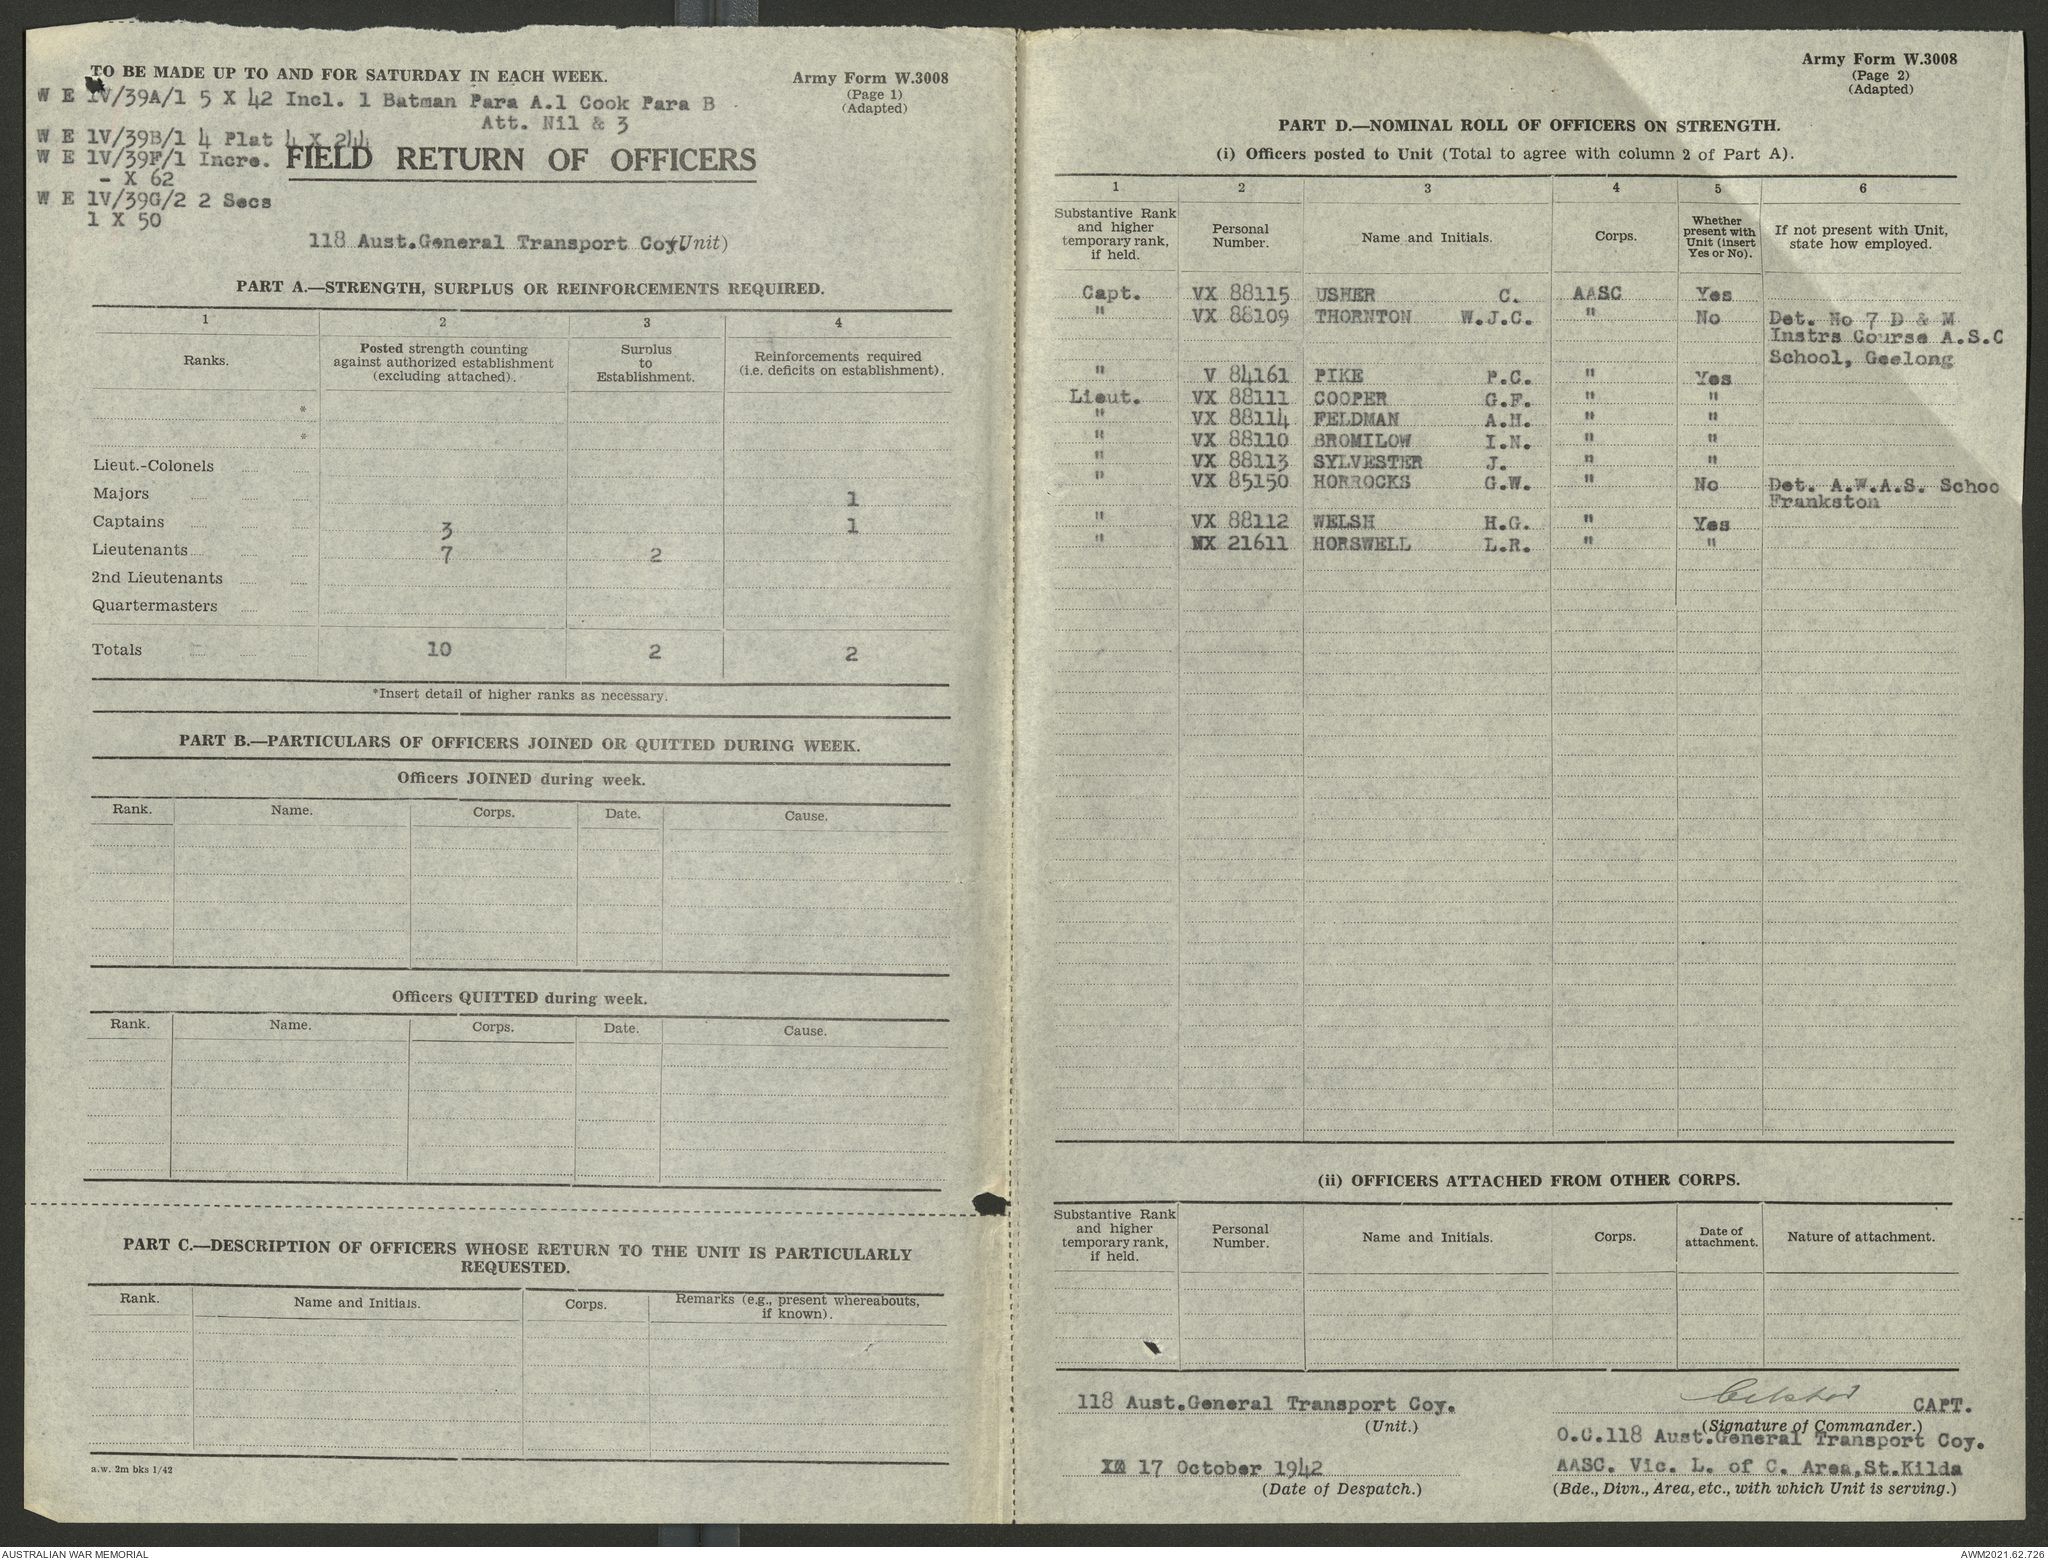 TO BE MADE UP TO AND FOR SATURDAY IN EACH WEEK.
Army Form W.3008
(Page 1)
(Adapted)
W E 1V/39A/1 5 X 42 Incl. 1 Batman Para A.1 Cook Para B
Att. Nil & 3
W E 1V/39B/1 4 Plat 4 X 244
W E 1V/39F/1 Incre.
- X 62
W E 1V/39G/2 2 Secs
1 X 50
FIELD RETURN OF OFFICERS
118 Aust.General Transport Coy (Unit)
PART A.—STRENGTH, SURPLUS OR REINFORCEMENTS REQUIRED.
1 2 3 4
Ranks. Posted strength counting against authorized establishment (excluding attached). Surplus to Establishment. Reinforcements required (i.e. deficits on establishment).
*
*
Lieut.-Colonels
Majors 1
Captains 3 1
Lieutenants 7 2
2nd Lieutenants
Quartermasters
Totals 10 2 2
*Insert detail of higher ranks as necessary.
PART B.—PARTICULARS OF OFFICERS JOINED OR QUITTED DURING WEEK.
Officers JOINED during week.
Rank. Name. Corps. Date. Cause.
Officers QUITTED during week.
Rank. Name. Corps. Date. Cause.
PART C.—DESCRIPTION OF OFFICERS WHOSE RETURN TO THE UNIT IS PARTICULARLY
REQUESTED.
Rank. Name and Initials. Corps. Remarks (e.g., present whereabouts, if known).
a.w. 2m bks 1/42
Army Form W.3008
(Page 2)
(Adapted)
PART D.—NOMINAL ROLL OF OFFICERS ON STRENGTH.
(i) Officers posted to Unit (Total to agree with column 2 of Part A).
1 2 3 4 5 6
Substantive Rank and higher temporary rank, if held. Personal Number. Name and Initials. Corps. Whether present with Unit (insert Yes or No). If not present with Unit, state how employed.
Capt. VX 88115 USHER C. AASC Yes
" VX 88109 THORNTON W.J.C. " No Det. No 7 D & M
Instrs Course A.S.C
School, Geelong
" V 84161 PIKE P.C. " Yes
Lieut. VX 88111 COOPER G.F. " "
" VX 88114 FELDMAN A.H. " "
" VX 88110 BROMILOW I.N. " "
" VX 88113 SYLVESTER J. " "
" VX 85150 HORROCKS G.W. " No Det. A.W.A.S. Schoo
Frankston
" VX 88112 WELSH H.G. " Yes
" NX 21611 HORSWELL L.R. " "
(ii) OFFICERS ATTACHED FROM OTHER CORPS.
Substantive Rank and higher temporary rank, if held. Personal Number. Name and Initials. Corps. Date of attachment. Nature of attachment.
118 Aust.General Transport Coy.
(Unit.)
CAPT.
(Signature of Commander.)
O.C.118 Aust.General Transport Coy.
17 October 1942
(Date of Despatch.)
AASC. Vic. L. of C. Area,St.Kilda
(Bde., Divn., Area, etc., with which Unit is serving.)
AUSTRALIAN WAR MEMORIAL
AWM2021.62.726